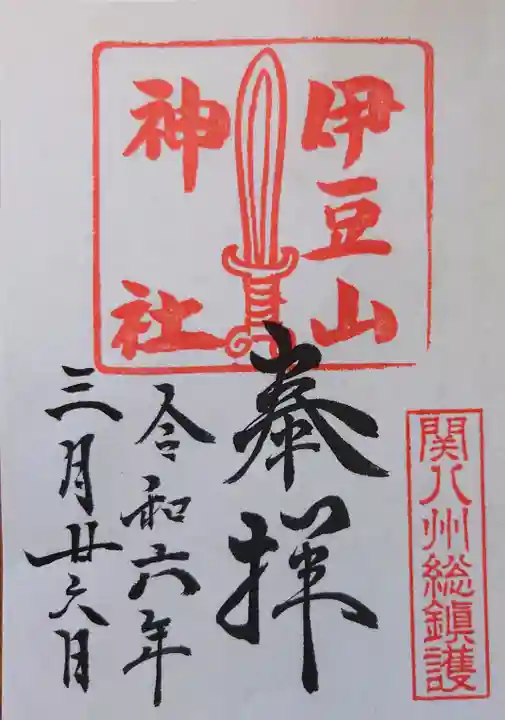 伊豆山
神社
関八州総鎮護
奉拝
令和六年
三月廿六日